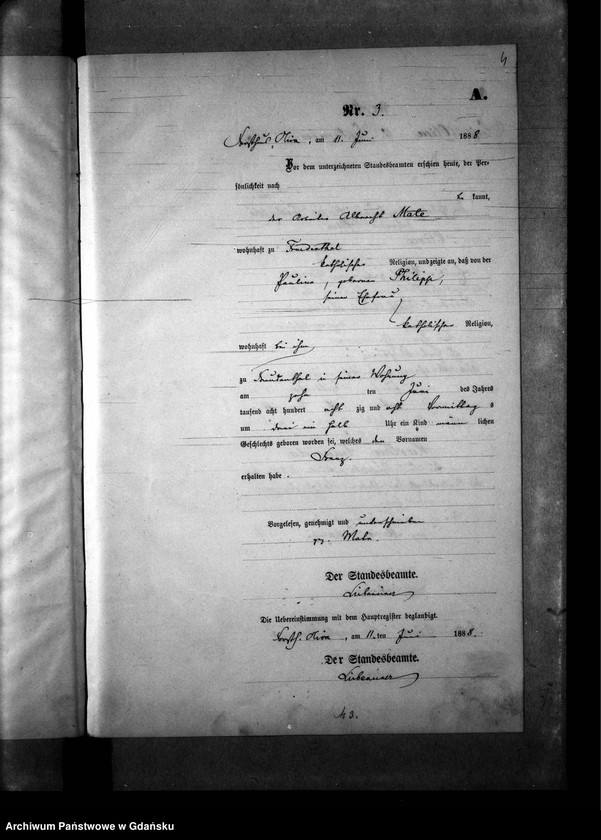 4
A.
Nr. 3.
Oliva, am 11. Juni 1888
Vor dem unterzeichneten Standesbeamten erschien heute, der Per-
sönlichkeit nach
be kannt,
der Arbeiter Albrecht
wohnhaft zu Freudenthal
katholischer Religion, und zeigte an, daß von der
Pauline, geborenen
seiner Ehefrau,
katholischer Religion,
wohnhaft bei ihm,
zu Freudenthal in seiner Wohnung
am zehn ten Juni des Jahres
tausend acht hundert acht zig und acht Vormittag s
um drei ein halb Uhr ein Kind männ lichen
Geschlechts geboren worden sei, welches den Vornamen
Franz.
erhalten habe.
Vorgelesen, genehmigt und unterschrieben
Der Standesbeamte.
Die Uebereinstimmung mit dem Hauptregister beglaubigt.
Oliva, am 11.ten Juni 1888.
Der Standesbeamte.
43.
Archiwum Państwowe w Gdańsku